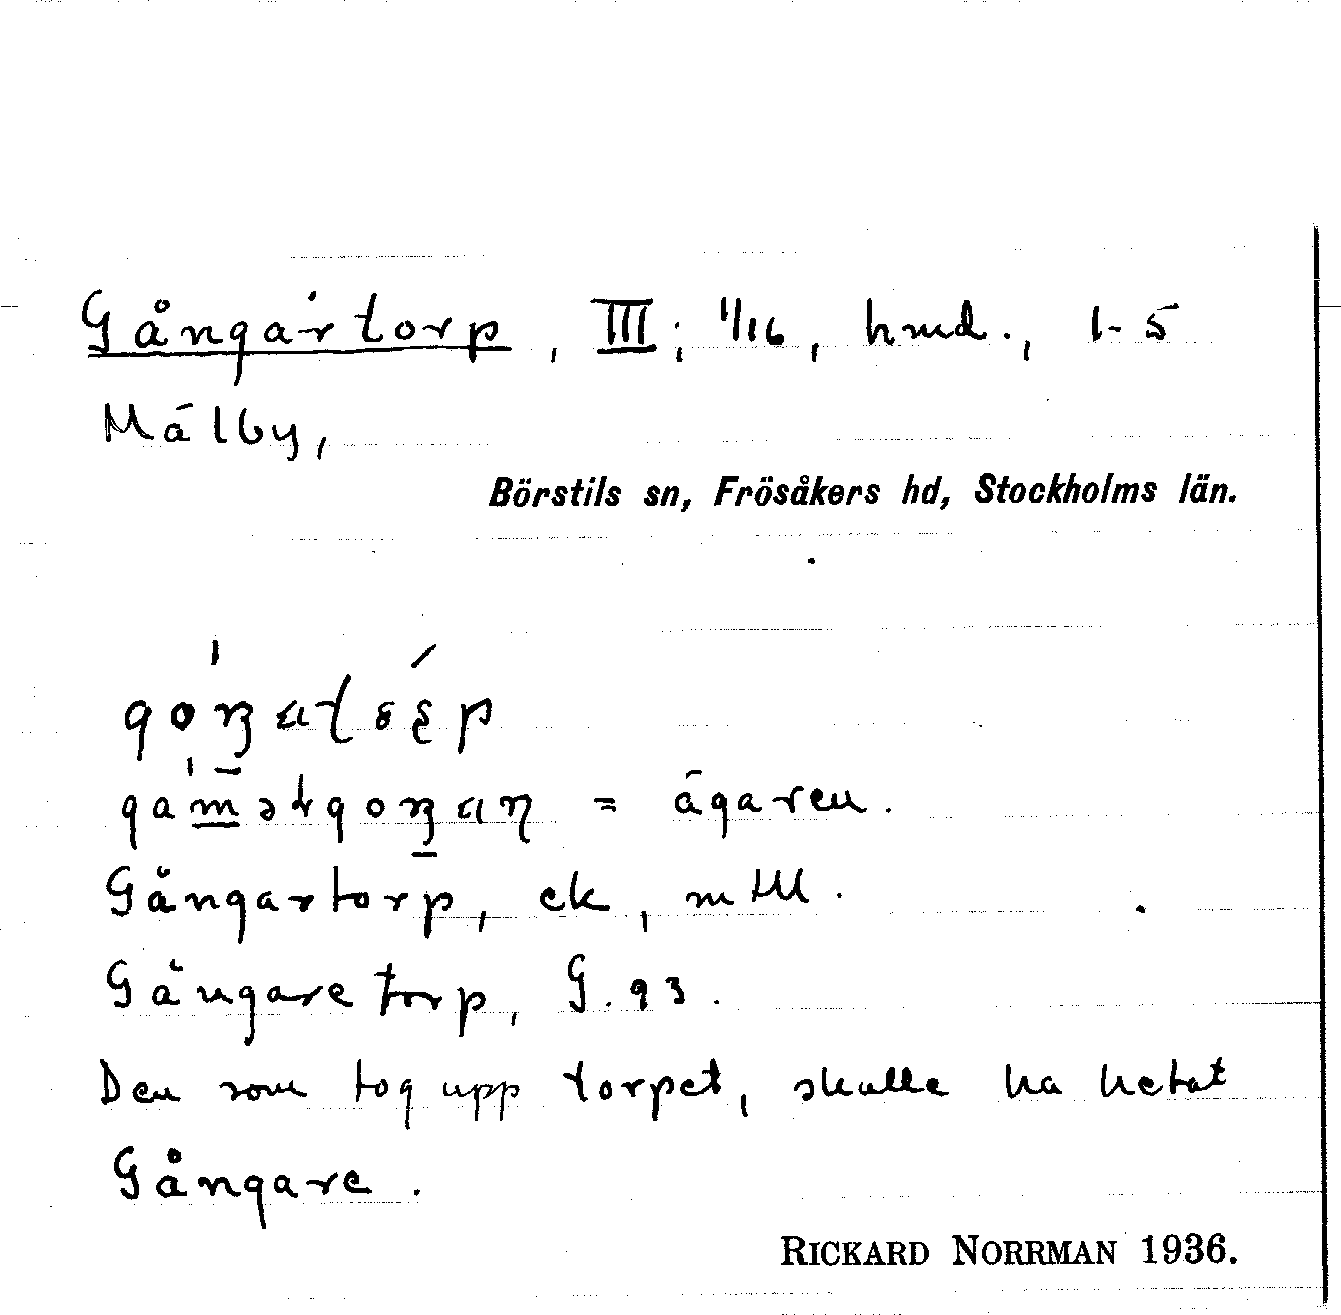 Gångartorp, III; 1/16, hmd., 1-5
Målby,
Börstils sn, Frösåkers hd, Stockholms län.
= ägaren.
Gångartorp, ek, m III.
Gångaretorp, G. 93.
Den som tog upp torpet, skulle ha hetat
Gångare.
RICKARD NORRMAN 1936.